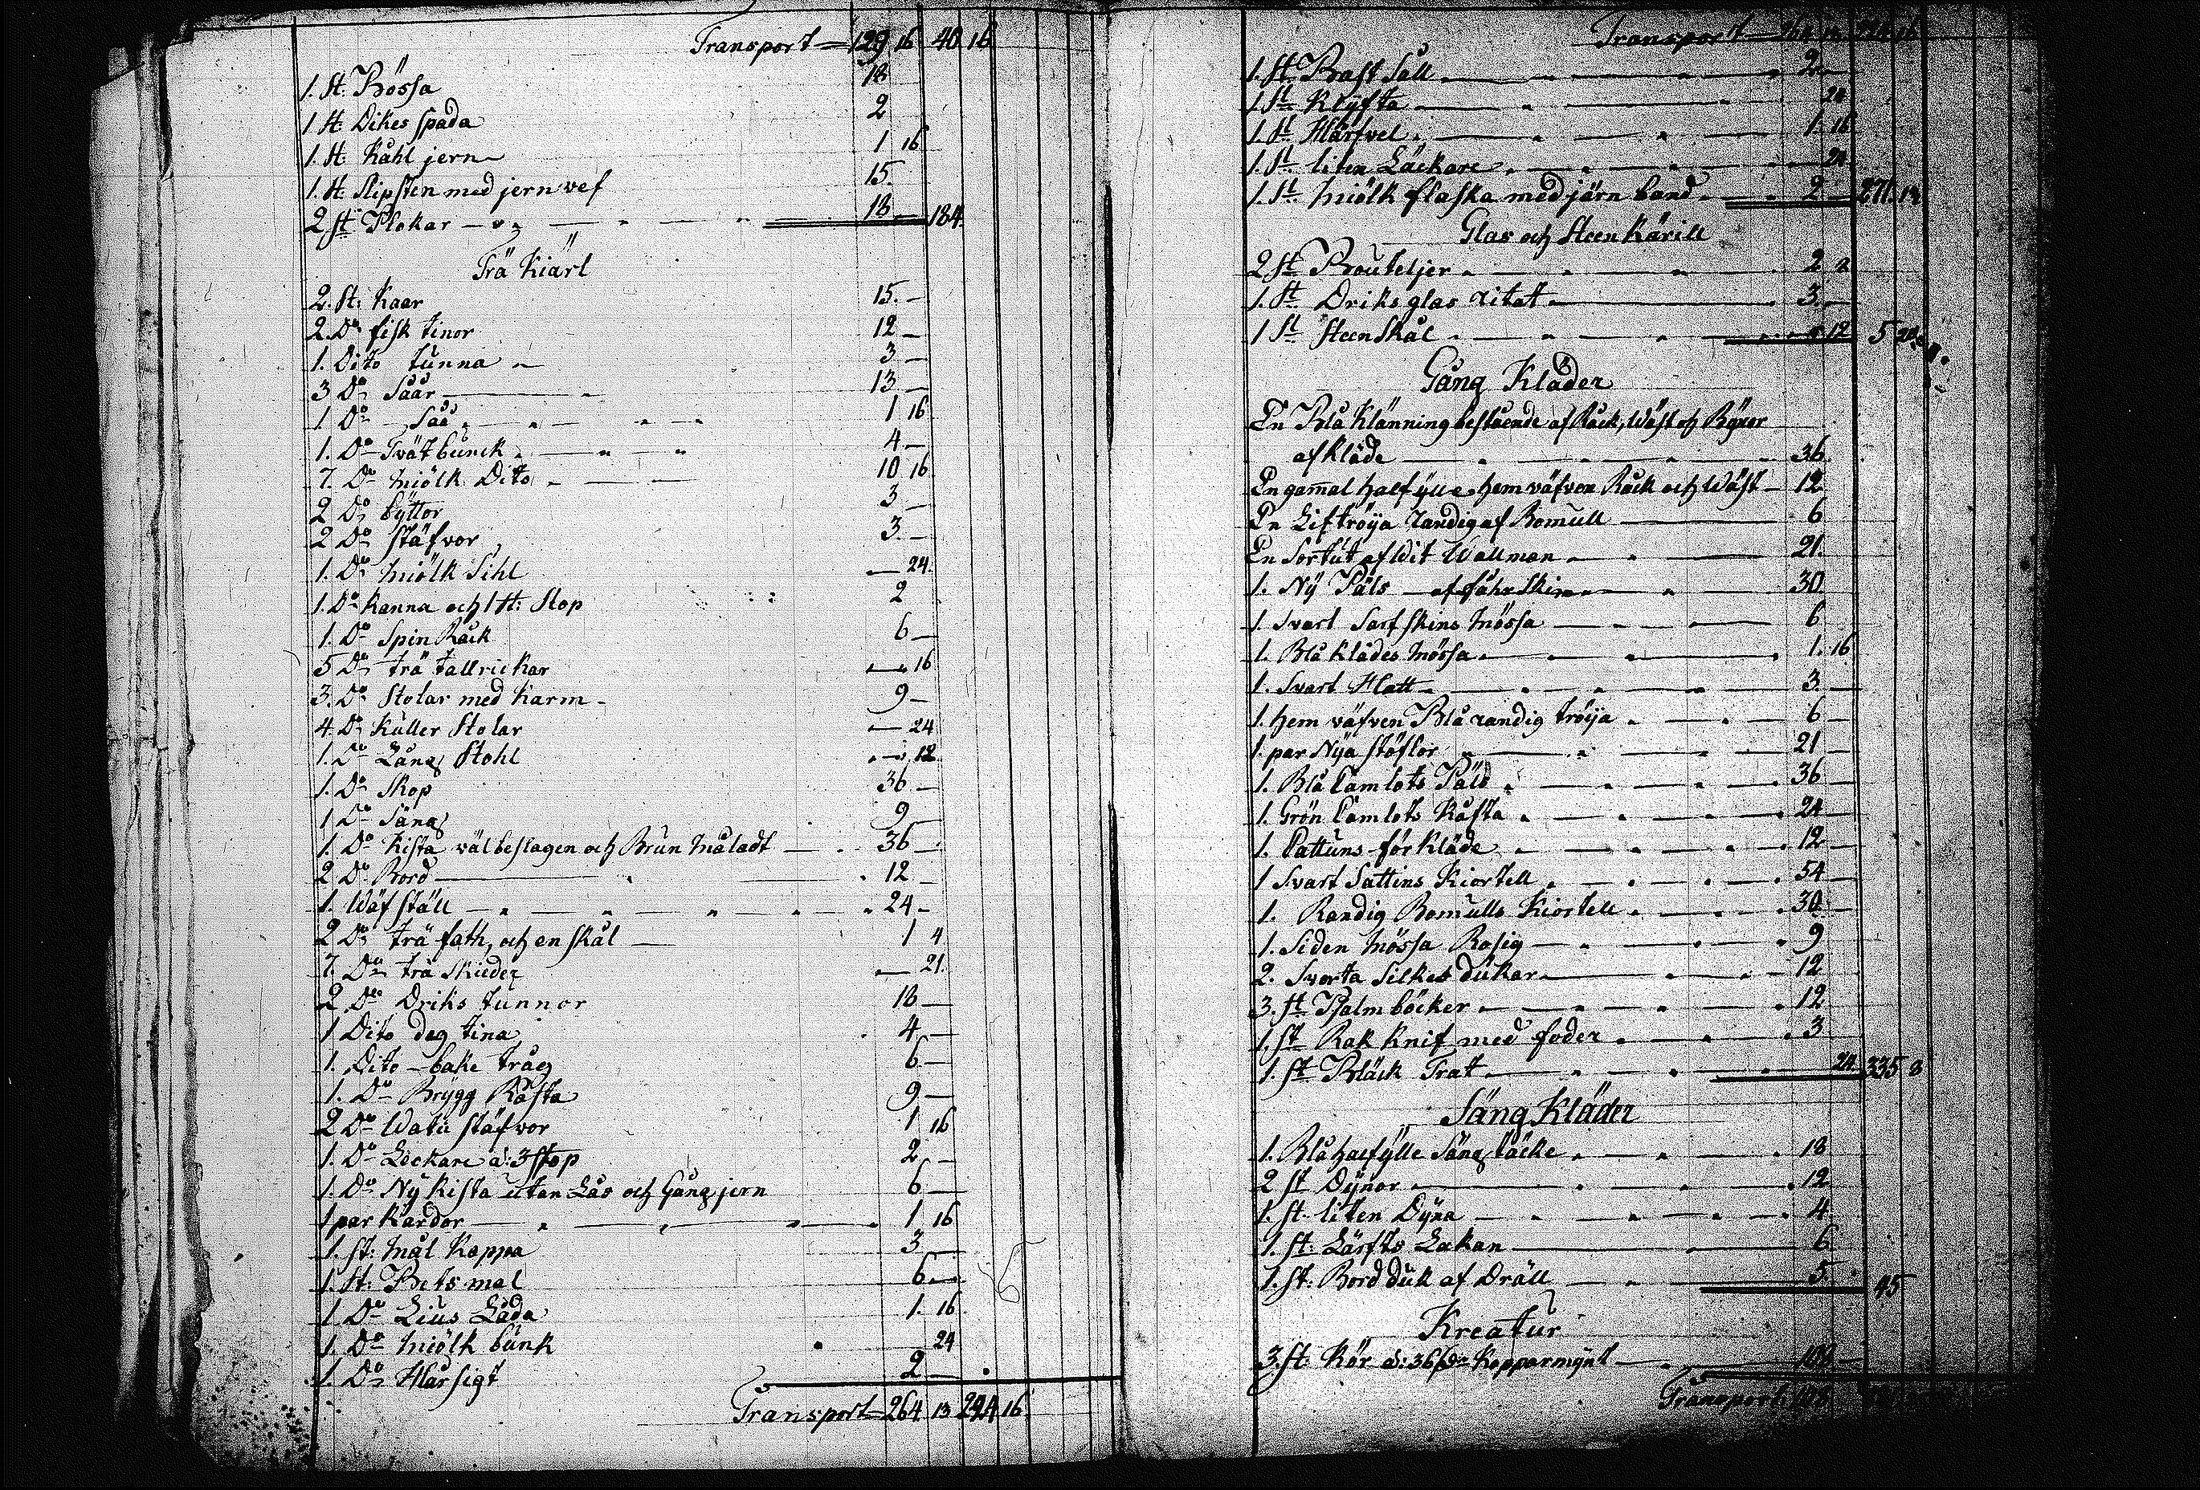 Transport = 129 16 40 16
1. St. Bössa 18
1 St. Dikes spada 2
1. St. Kåhl jern 1 16
1. St. Slipsten med jern vef 15.
2 St. Plokar 18 184
Trä Kiärl
2. St: Kaar 15. —
2. Do fisk tinor 12 —
1. Dito tunna 3 —
3 Do Såar 13 —
1 Do Såå 1 16
1. Do Tvätbunck 4 —
7. Do Miölk Dito 10 16
2 Do byttor 3 —
2 Do Stäfvor 3. —
1. Do Miölk Sihl — 24.
1. Do Kanna och 1 St: Stop 2
1. Do Spin Råck 6 —
5 Do trä tallrickar — 16
3. Do Stolar med Karm 9 —
4. Do Kuller Stolar — 24
1. Do Lång Stohl — 12
1. Do Skop 36 —
1 Do Säng 9 —
1. Do Kista väl beslagen och Brun Måladt 36 —
2 Do Bord 12 —
1. Wäf ställ 24 —
2 Do trä fath, och en skål 1 4
7. Do trä Skieder — 21.
2 Do Driks tunnor 18 —
1 Dito deg tina 4 —
1. Dito bake tråg 6 —
1. Do Brygg Råsta 9 —
2 Do Watu Stäfvor 1 16
1. Do Läckare a: 3 Stop 2 —
1. Do Ny Kista utan Lås och Gång jern 6 —
1 par Kardor 1 16
1. St: Mål Kappa 3 —
1. St: Betsmal 6 —
1 Do Lius Låda 1. 16
1. Do Miölk bunk 24
1. Do Hår sigt 2 —
Transport 264 13 224 16
Transport 264 13 224 16
1. St. Bast Såll 2 —
1 St. Klyfta 24
1. St. Härfvel 1. 16
1. St. liten Läckare 24
1. St. Miölk flaska med järn band 2 271. 13
Glas och Steen Kärill
2 St Bouteljer 2 8
1. St Driks glas ritat 3. —
1 St Steen Skål 12 5 20
Gång Kläder
En Blå Klänning bestående af Råck, Wäst och Byxor
af Kläde 36.
En gamal half ylle hemväfven Råck och Wäst 12
En Liftröija randig af Bomull 6
En Sortut af Wit Wallman 21.
1. Ny Päls af fåhr Skin 30.
1. Svart Sarf skins Mössa 6
1. Blå Klädes Mössa 1. 16
1. Svart Hatt 3. —
1. hem väfven Blå randig tröija 6 —
1. par Nya Stöflor 21 —
1. Blå Camlots Päls 36 —
1. Grön Camlots Kasta 24 —
1. Cattuns förkläde 12 —
1 Svart Sattins Kiortell 54 —
1. Randig Bomulls Kiortell 30 —
1. Siden Mössa Rosig 9
2. Svarta Silkes dukar 12
3. St. Psalm böcker 12
1. St Rak Knif med foder 3
1. St Bläck Trat 24 335 8
Säng Kläder
1. Blå half ylle Säng täcke 18
2 St Dynor 12
1. St. liten Dyna 4
1 St: Lärfts Lakan 6
1. St: Bord duk af Dräll 5. 45
Kreatur
3. St: Kör a: 36 Dr Kopparmynt 108 —
Transport 108